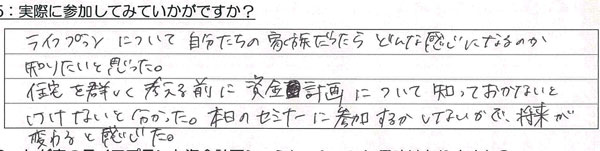 5：実際に参加してみていかがですか？
ライフプランについて自分たちの家族だったらどんな感じになるのか
知りたいと思った。
住宅を詳しく考える前に資金計画について知っておかないと
いけないと分かった。本日のセミナーに参加するかしないかで、将来が
変わると感じた。